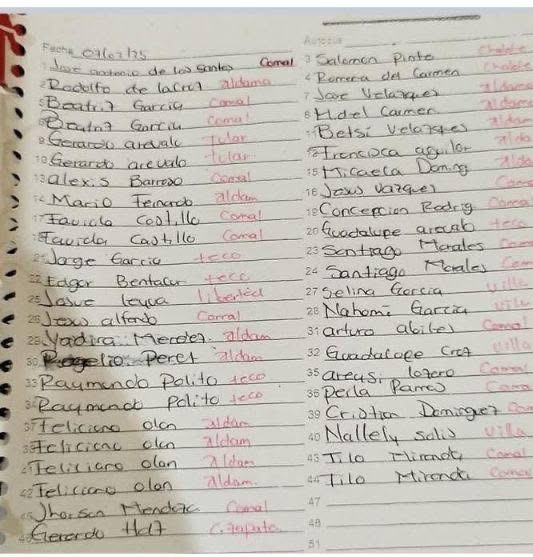 Fecha 07/07/25
1 Jose antonio de los Santos Comal
2 Rodolfo de lacruz aldama
5 Beatriz Garcia Comal
6 Beatriz Garcia Comal
9 Gerardo arevalo tular
10 Gerardo arevalo tular
13 alexis Barroso Comal
14 Mario Feinardo aldam
17 Faviola Castillo Comal
18 Faviola Castillo Comal
21 Jorge Garcia teco
22 Edgar Bentacur teco
25 Josue leyva liberted
26 Jesus alfonso Comal
29 Yadira Mendez aldam
30 Rogelio Perez aldam
33 Raymundo Polito teco
34 Raymundo Polito teco
37 feliciano olan aldam
38 feliciano olan aldam
41 Feliciano olan aldam
42 Feliciano olan aldam.
45 Jhorson Mendoza Comal
46 Gerardo C. zapata
Autoriza
3 Salomon Pinto Chalete
4 Romera del Carmen Chalete
7 Jose Velazquez aldama
8 del Carmen aldama
11 Betsi Velazques aldam
12 Francisca aguilar alda
15 Micaela Doming alda
16 Jesus Vazquez Coma
19 Concepcion Rodrig Comal
20 Guadalupe arevalo teco
23 Santiago Morales Com
24 Santiago Morales Com
27 Selina Garcia Ville
28 Nahomi Garcia Ville
31 arturo abiles Comal
32 Guadalope Cruz Villa
35 areusi lotero Comal
36 Perla Ramos Coma
39 Cristian Dominguez Com
40 Nallely solis Villa
43 Tilo Miranda Comal
44 Tilo Miranda Comal
47
48
51